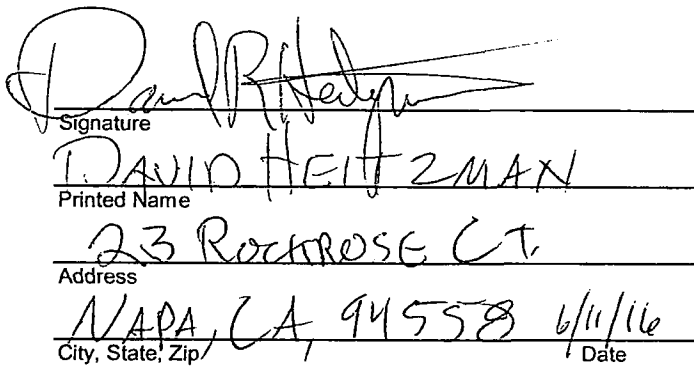 David R Heitzman
Signature
DAVID HEITZMAN
Printed Name
23 ROCKROSE CT.
Address
NAPA, CA, 94558 6/11/16
City, State, Zip Date